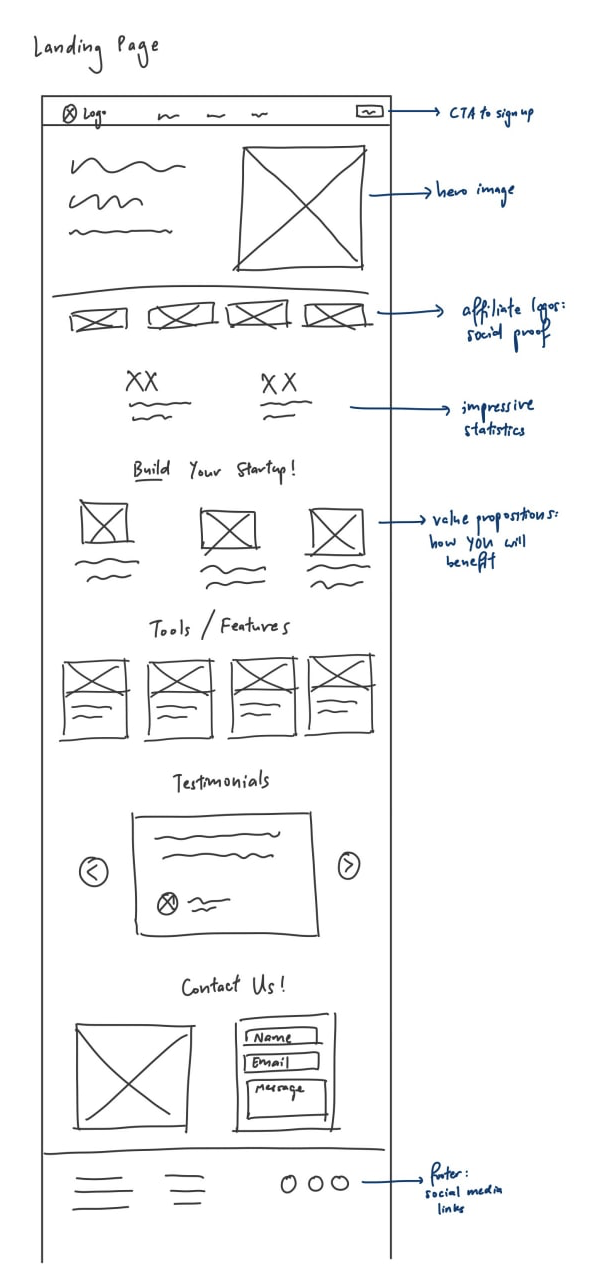 Landing Page
Logo
CTA to sign up
hero image
affiliate logos:
social proof
XX
XX
impressive
statistics
Build Your Startup!
value propositions:
how YOU will
benefit
Tools / Features
Testimonials
<
>
Contact Us!
Name
Email
Message
footer:
social media
links